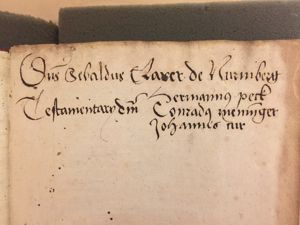 Dns Sebaldus Clarer de Nurmberg
Testamentarij dni Hermannus peck
Conradus meninger
Johannes